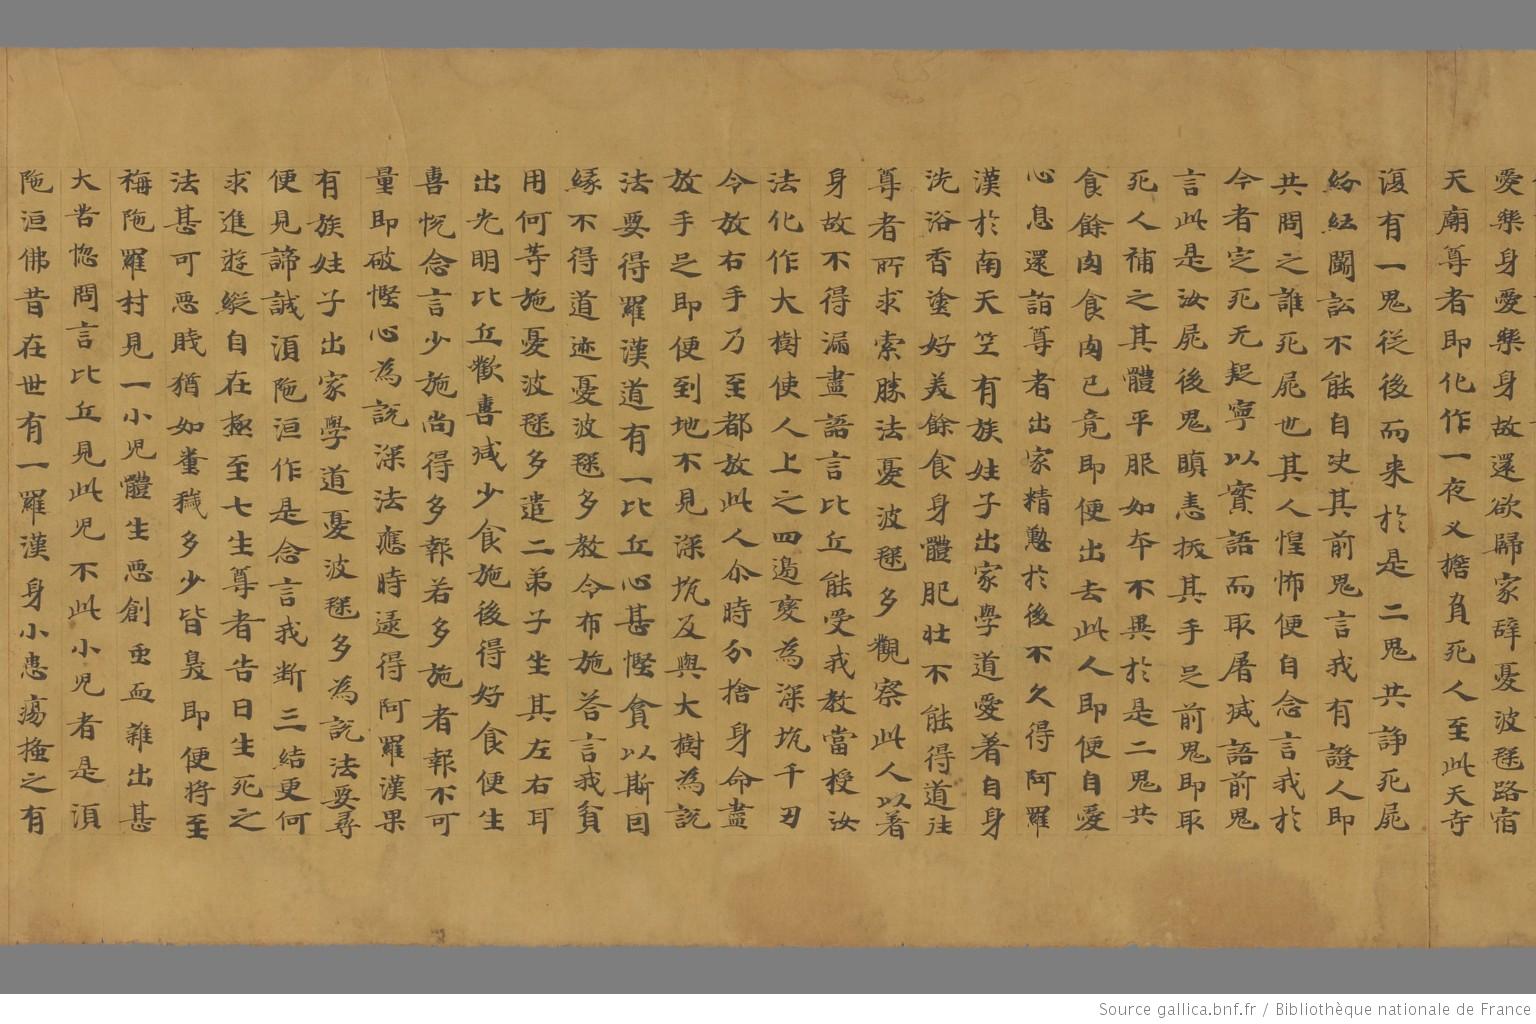 愛樂身愛樂身故還欲歸家辞憂波毱路宿
天廟尊者即化作一夜叉擔負死人至此天寺
復有一鬼従後而来於是二鬼共諍死屍
紛紜鬪訟不能自決其前鬼言我有證人即
共問之誰死屍也其人惶怖便自念言我於
今者定死无疑寧以實語而取屠滅語前鬼
言此是汝屍後鬼瞋恚拔其手足前鬼即取
死人補之其體平服如本不異於是二鬼共
食餘肉食肉已竟即便出去此人即便自愛
心息還詣尊者出家精懃於後不久得阿羅
漢於南天竺有族姓子出家學道愛著自身
洗浴香塗好美餘食身體肥壮不能得道往
尊者所求索勝法憂波毱多觀察此人以著
身故不得漏盡語言比丘能受我教當授汝
法化作大樹使人上之四邊變為深坑千刃
令放右手乃至都放此人尒時分捨身命盡
放手足即便到地不見深坑及與大樹為説
法要得羅漢道有一比丘心甚慳貪以斯因
縁不得道迹憂波毱多教令布施答言我貧
用何等施憂波毱多遣二弟子坐其左右耳
出光明比丘歡喜減少食施後得好食便生
喜悦念言少施尚得多報若多施者報不可
量即破慳心為説深法應時逮得阿羅漢果
有族姓子出家學道憂波毱多為説法要尋
便見諦誠湏陁洹作是念言我断三結更何
求進遊縱自在極至七生尊者告曰生死之
法甚可惡賤猶如糞穢多少皆臭即便将至
栴陁羅村見一小児體生惡創重血雜出甚
大苦惱問言比丘見此児不此小児者是湏
陁洹佛昔在世有一羅漢身小患瘍搔之有
Source gallica.bnf.fr / Bibliothèque nationale de France